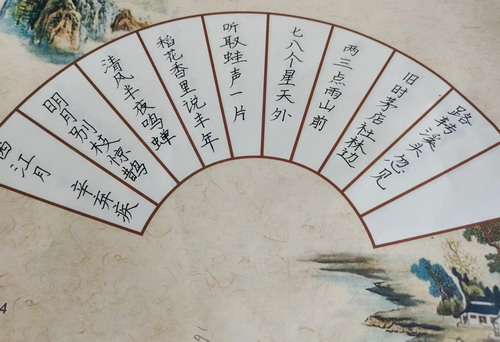 西江月 辛弃疾
明月别枝惊鹊
清风半夜鸣蝉
稻花香里说丰年
听取蛙声一片
七八个星天外
两三点雨山前
旧时茅店社林边
路转溪头忽见
4